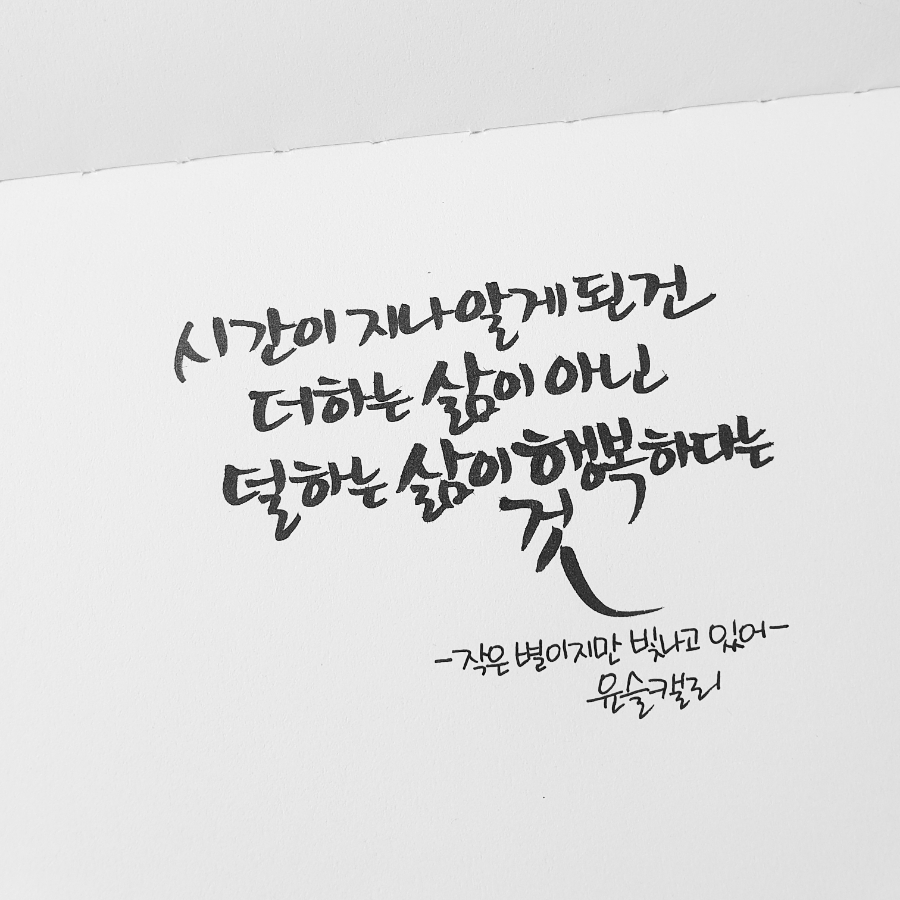 시간이 지나 알게 된 건
더하는 삶이 아닌
덜하는 삶이 행복하다는
것
-작은 별이지만 빛나고 있어-
윤슬캘리